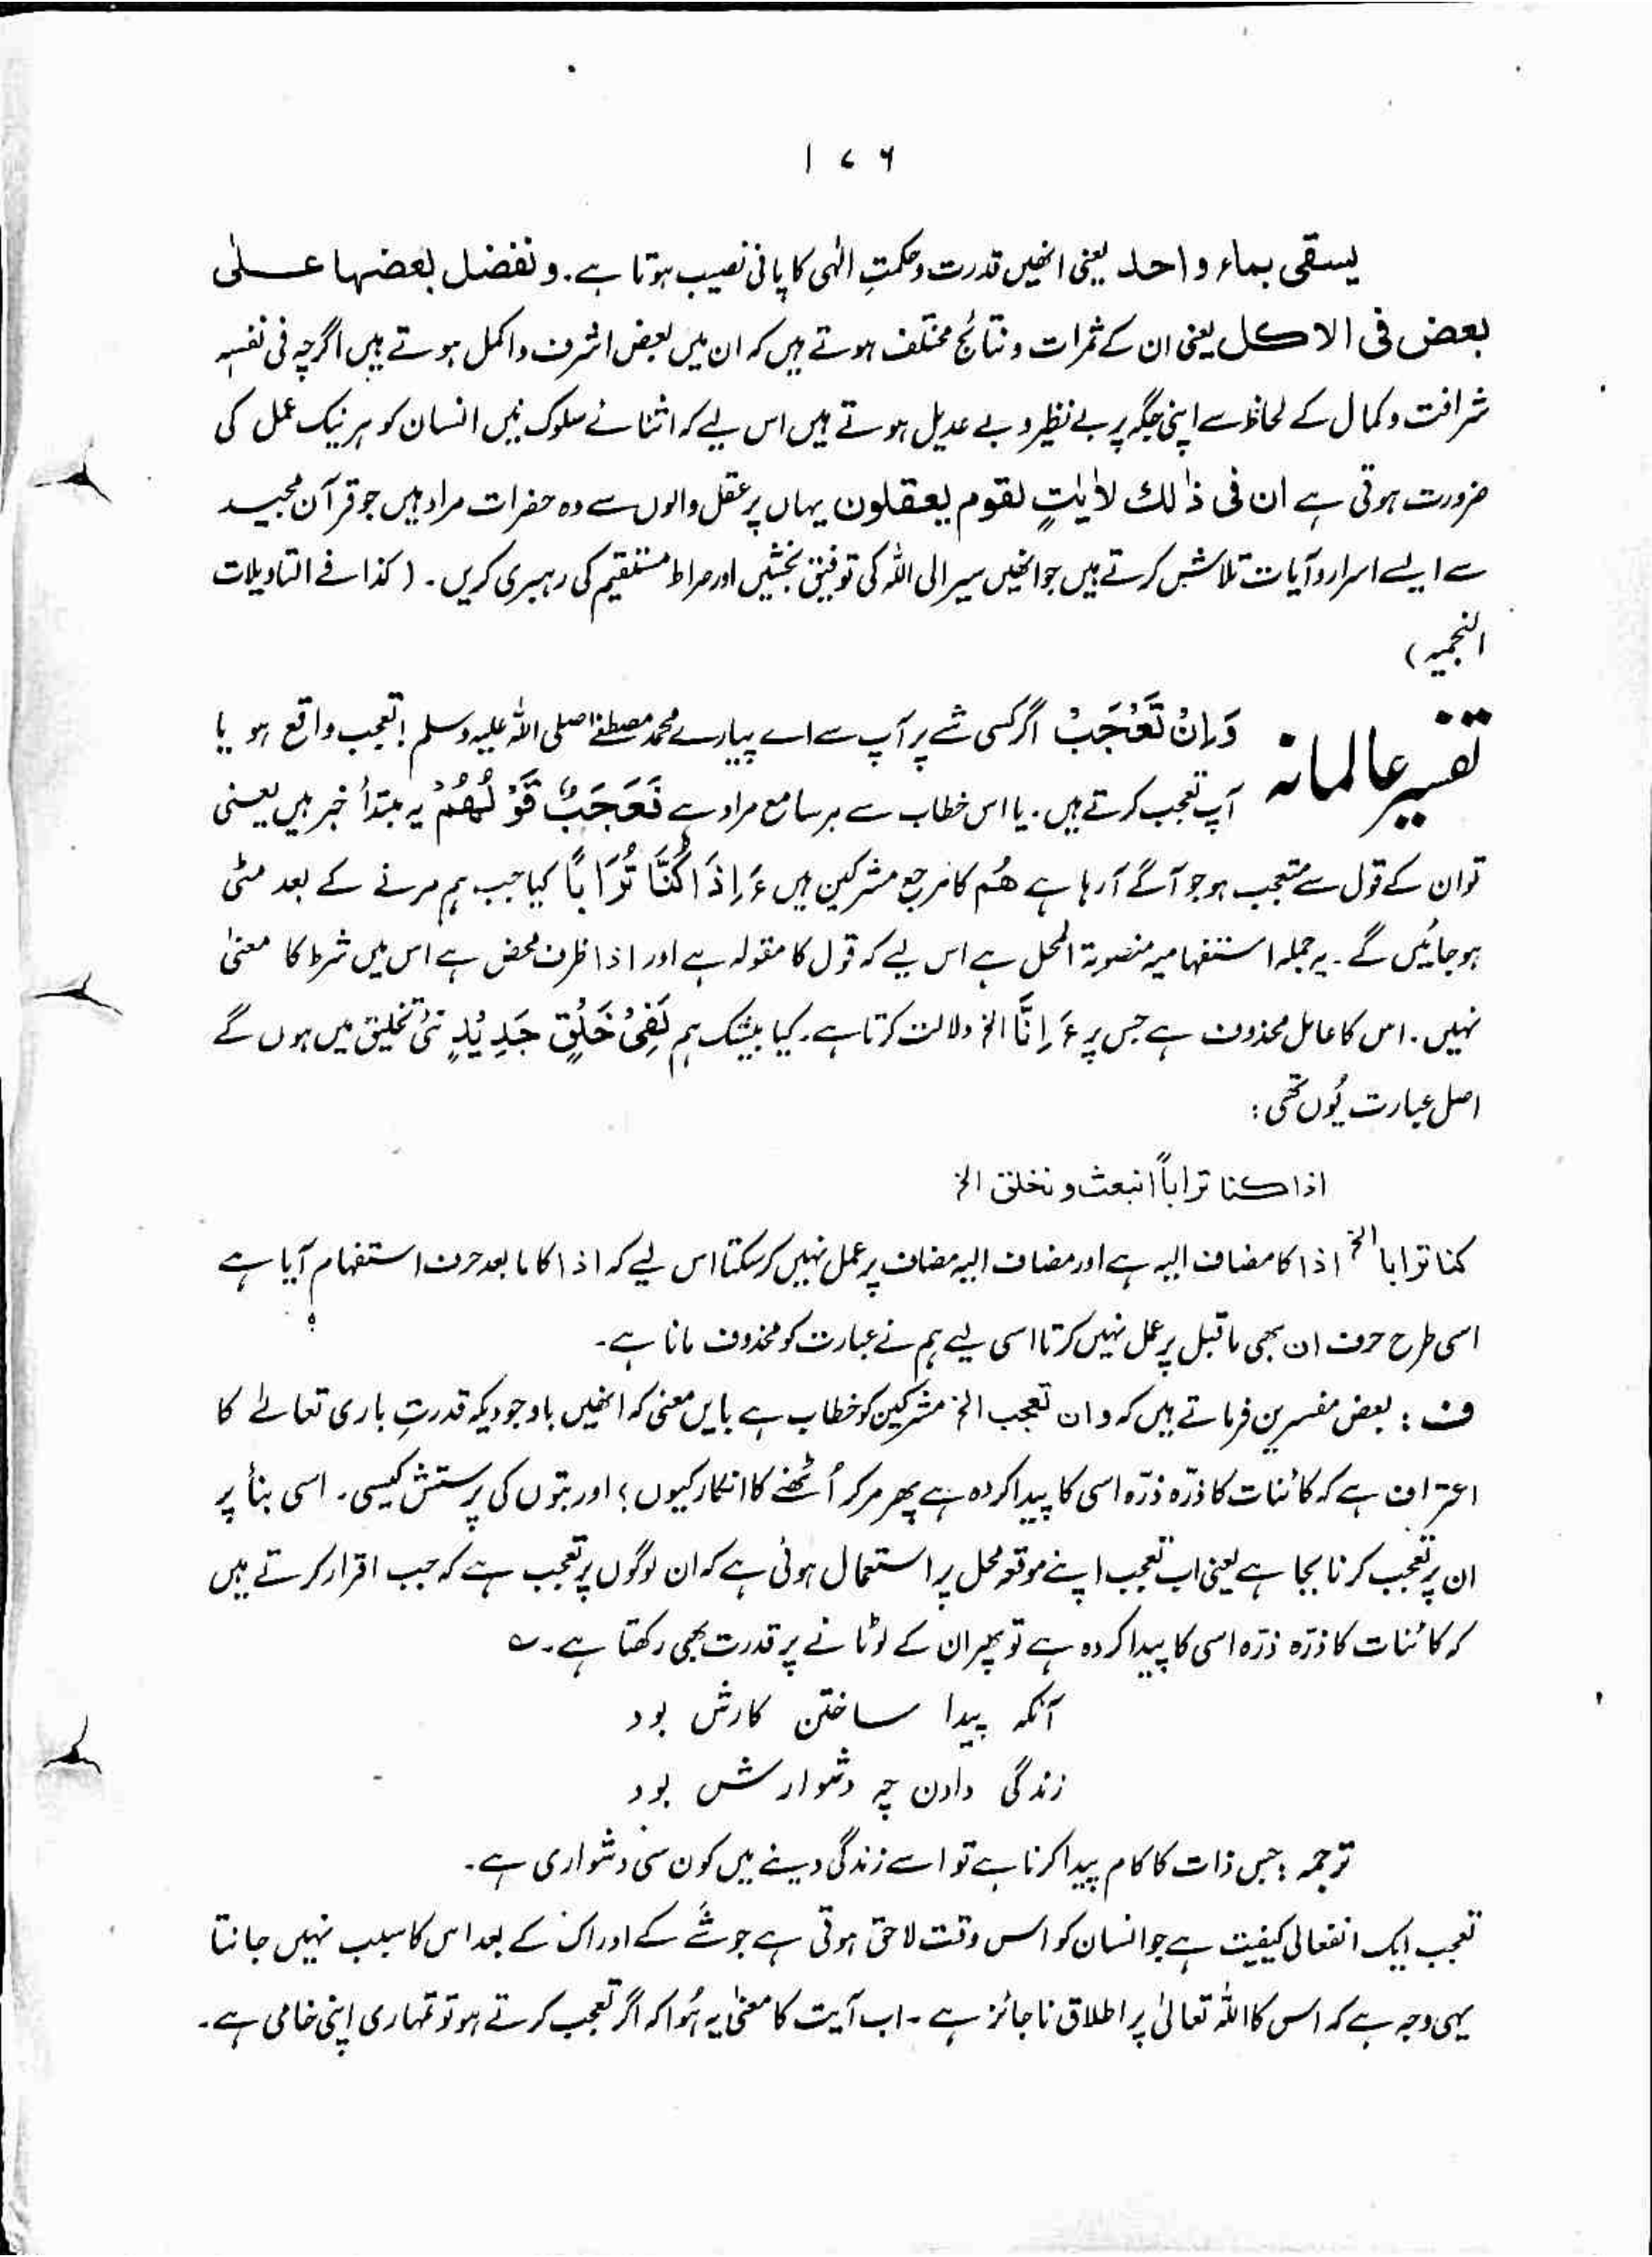 ۱۷۶
يسقى بماء واحد یعنی انھیں قدرت و حکمتِ الٰہی کا پانی نصیب ہوتا ہے۔ و نفضل بعضها علىٰ
بعض فی الاکل یعنی ان کے ثمرات و نتائج مختلف ہوتے ہیں کہ ان میں بعض اشرف و اکمل ہوتے ہیں اگرچہ فی نفسہٖ
شرافت و کمال کے لحاظ سے اپنی جگہ پر بے نظیر و بے عدیل ہوتے ہیں اس لیے کہ اثنائے سلوک میں انسان کو ہر نیک عمل کی
ضرورت ہوتی ہے ان فی ذٰلك لاٰيٰتٍ لقوم يعقلون یہاں پر عقل والوں سے وہ حضرات مراد ہیں جو قرآن مجید
سے ایسے اسرار و آیات تلاش کرتے ہیں جو انھیں سیر الی اللہ کی توفیق بخشیں اور صراط مستقیم کی رہبری کریں۔ (کذا فے التاویلات
النجمیہ)
تفسیر عالمانہ
وَاِنْ تَعْجَبْ اگر کسی شے پر آپ سے اے پیارے محمد مصطفےٰ صلی اللہ علیہ وسلم! تعجب واقع ہو یا
آپ تعجب کرتے ہیں۔ یا اس خطاب سے ہر سامع مراد ہے فَعَجَبٌ قَوْلُهُمْ یہ مبتدأ خبر ہیں یعنی
تو ان کے قول سے متعجب ہو جو آگے آرہا ہے هُم کا مرجع مشرکین ہیں ءَاِذَا كُنَّا تُرَابًا کیا جب ہم مرنے کے بعد مٹی
ہوجائیں گے۔ یہ جملہ استفہامیہ منصوبۃ المحل ہے اس لیے کہ قول کا مقولہ ہے اور اذا ظرف محض ہے اس میں شرط کا معنیٰ
نہیں۔ اس کا عامل محذوف ہے جس پر ءَاِنَّا الخ دلالت کرتا ہے۔ کیا بیشک ہم لَفِیْ خَلْقٍ جَدِيْدٍ نئی تخلیق میں ہوں گے
اصل عبارت یُوں تھی:
اذا كنا تراباً انبعث و نخلق الخ
کنا ترابا الخ اذا کا مضاف الیہ ہے اور مضاف الیہ مضاف پر عمل نہیں کرسکتا اس لیے کہ اذا کا مابعد حرف استفہام آیا ہے
اسی طرح حرف ان بھی ماقبل پر عمل نہیں کرتا اسی لیے ہم نے عبارت کو محذوف مانا ہے۔
ف : بعض مفسرین فرماتے ہیں کہ و ان تعجب الخ مشرکین کو خطاب ہے بایں معنی کہ انھیں باوجودیکہ قدرتِ باری تعالےٰ کا
اعتراف ہے کہ کائنات کا ذرّہ ذرّہ اسی کا پیدا کردہ ہے پھر مر کر اُٹھنے کا انکار کیوں؛ اور بتوں کی پرستش کیسی۔ اسی بنأ پر
ان پر تعجب کرنا بجا ہے یعنی اب تعجب اپنے موقعہ محل پر استعمال ہوئی ہے کہ ان لوگوں پر تعجب ہے کہ جب اقرار کرتے ہیں
کہ کائنات کا ذرّہ ذرّہ اسی کا پیدا کردہ ہے تو پھر ان کے لوٹانے پر قدرت بھی رکھتا ہے۔ ؎
آنکہ پیدا ساختن کارش بود
زندگی دادن چہ دشوارش بود
ترجمہ : جس ذات کا کام پیدا کرنا ہے تو اسے زندگی دینے میں کون سی دشواری ہے۔
تعجب ایک انفعالی کیفیت ہے جو انسان کو اس وقت لاحق ہوتی ہے جو شے کے ادراک کے بعد اس کا سبب نہیں جانتا
یہی وجہ ہے کہ اس کا اللہ تعالیٰ پر اطلاق ناجائز ہے ۔ اب آیت کا معنیٰ یہ ہُوا کہ اگر تعجب کرتے ہو تو تمہاری اپنی خامی ہے۔